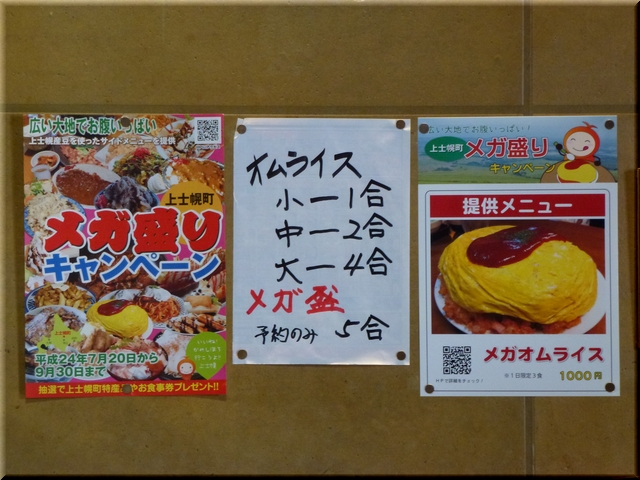 広い大地でお腹いっぱい
上士幌産豆を使ったサイドメニューを提供
上士幌町
メガ盛り
キャンペーン
平成24年7月20日から
9月30日まで
抽選で上士幌町特産品やお食事券プレゼント!!
オムライス
小ー1合
中ー2合
大ー4合
メガ盛
予約のみ 5合
広い大地でお腹いっぱい!
上士幌町 メガ盛り
キャンペーン
提供メニュー
メガオムライス
※1日限定3食 1000円
HPで詳細をチェック!